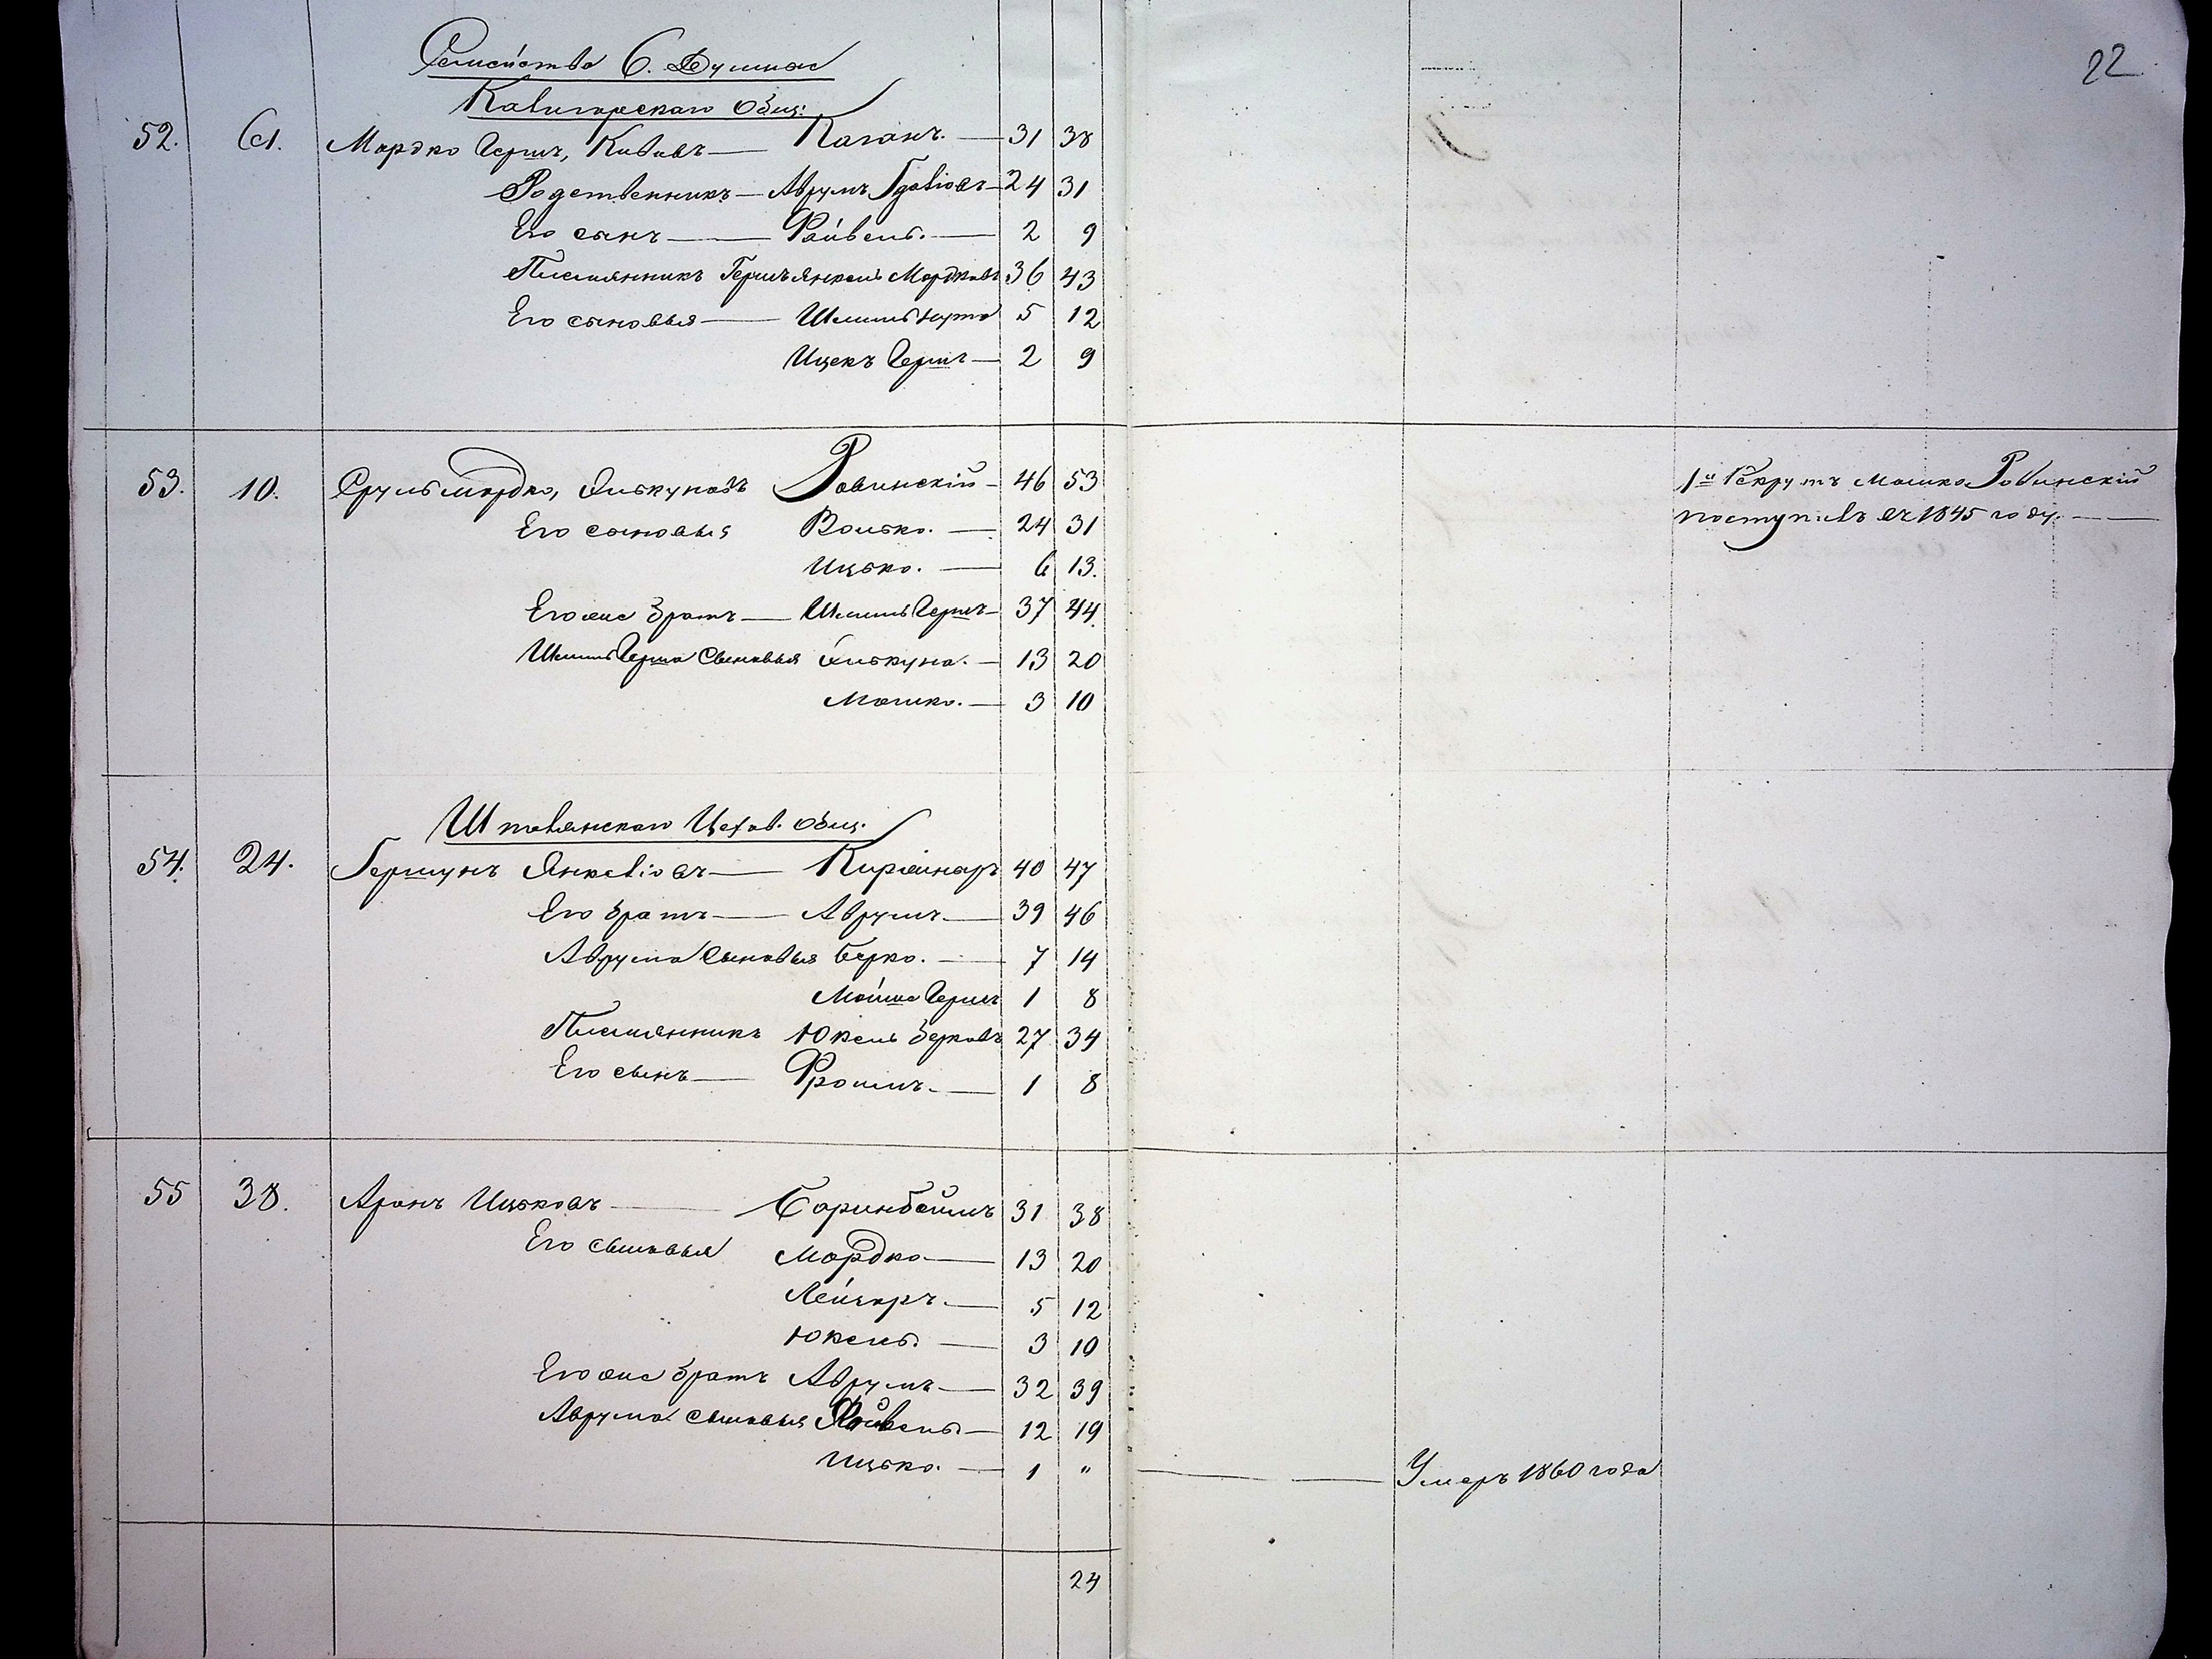 22
Семейства 6. Душныя
Кавигорскаго Общ:
52. 61. Мордко Герш, Кивовъ — Каганъ. — 31 38
Родственникъ — Аврумъ Гдаліовъ — 24 31
Его сынъ — Файвель. — 2 9
Племянникъ Гершъ Янкель Мордковъ 36 43
Его сыновья — Шмиль Нута 5 12
Ицекъ Гершъ — 2 9
53. 10. Сруль Мордко, Элькуновъ Ровинскій — 46 53
1й Рекрутъ Мошко Ровинскій
поступилъ въ 1845 году. —
Его сыновья Волько. — 24 31
Ицько. — 6 13.
Его же братъ — Шмиль Гершъ — 37 44.
Шмиль Герша Сыновья Элькуна. — 13 20
Мошко. — 3 10
Шпалянскаго Цехов. общ.
54. 24. Гершунъ Янкеліовъ — Киржнаръ 40 47
Его братъ — Аврумъ — 39 46
Аврума Сыновья Берко. — 7 14
Мойше Гершъ 1 8
Племянникъ Юкель Берковъ 27 34
Его сынъ — Фроимъ. — 1 8
55 38. Аронъ Ицьковъ — Баринбоймъ 31 38
Его сыновья Мордко — 13 20
Лейзоръ. — 5 12
Юкель. — 3 10
Его же братъ Аврумъ — 32 39
Аврума сыновья Файвель — 12 19
Ицько. — 1 " — Умеръ 1860 года
24